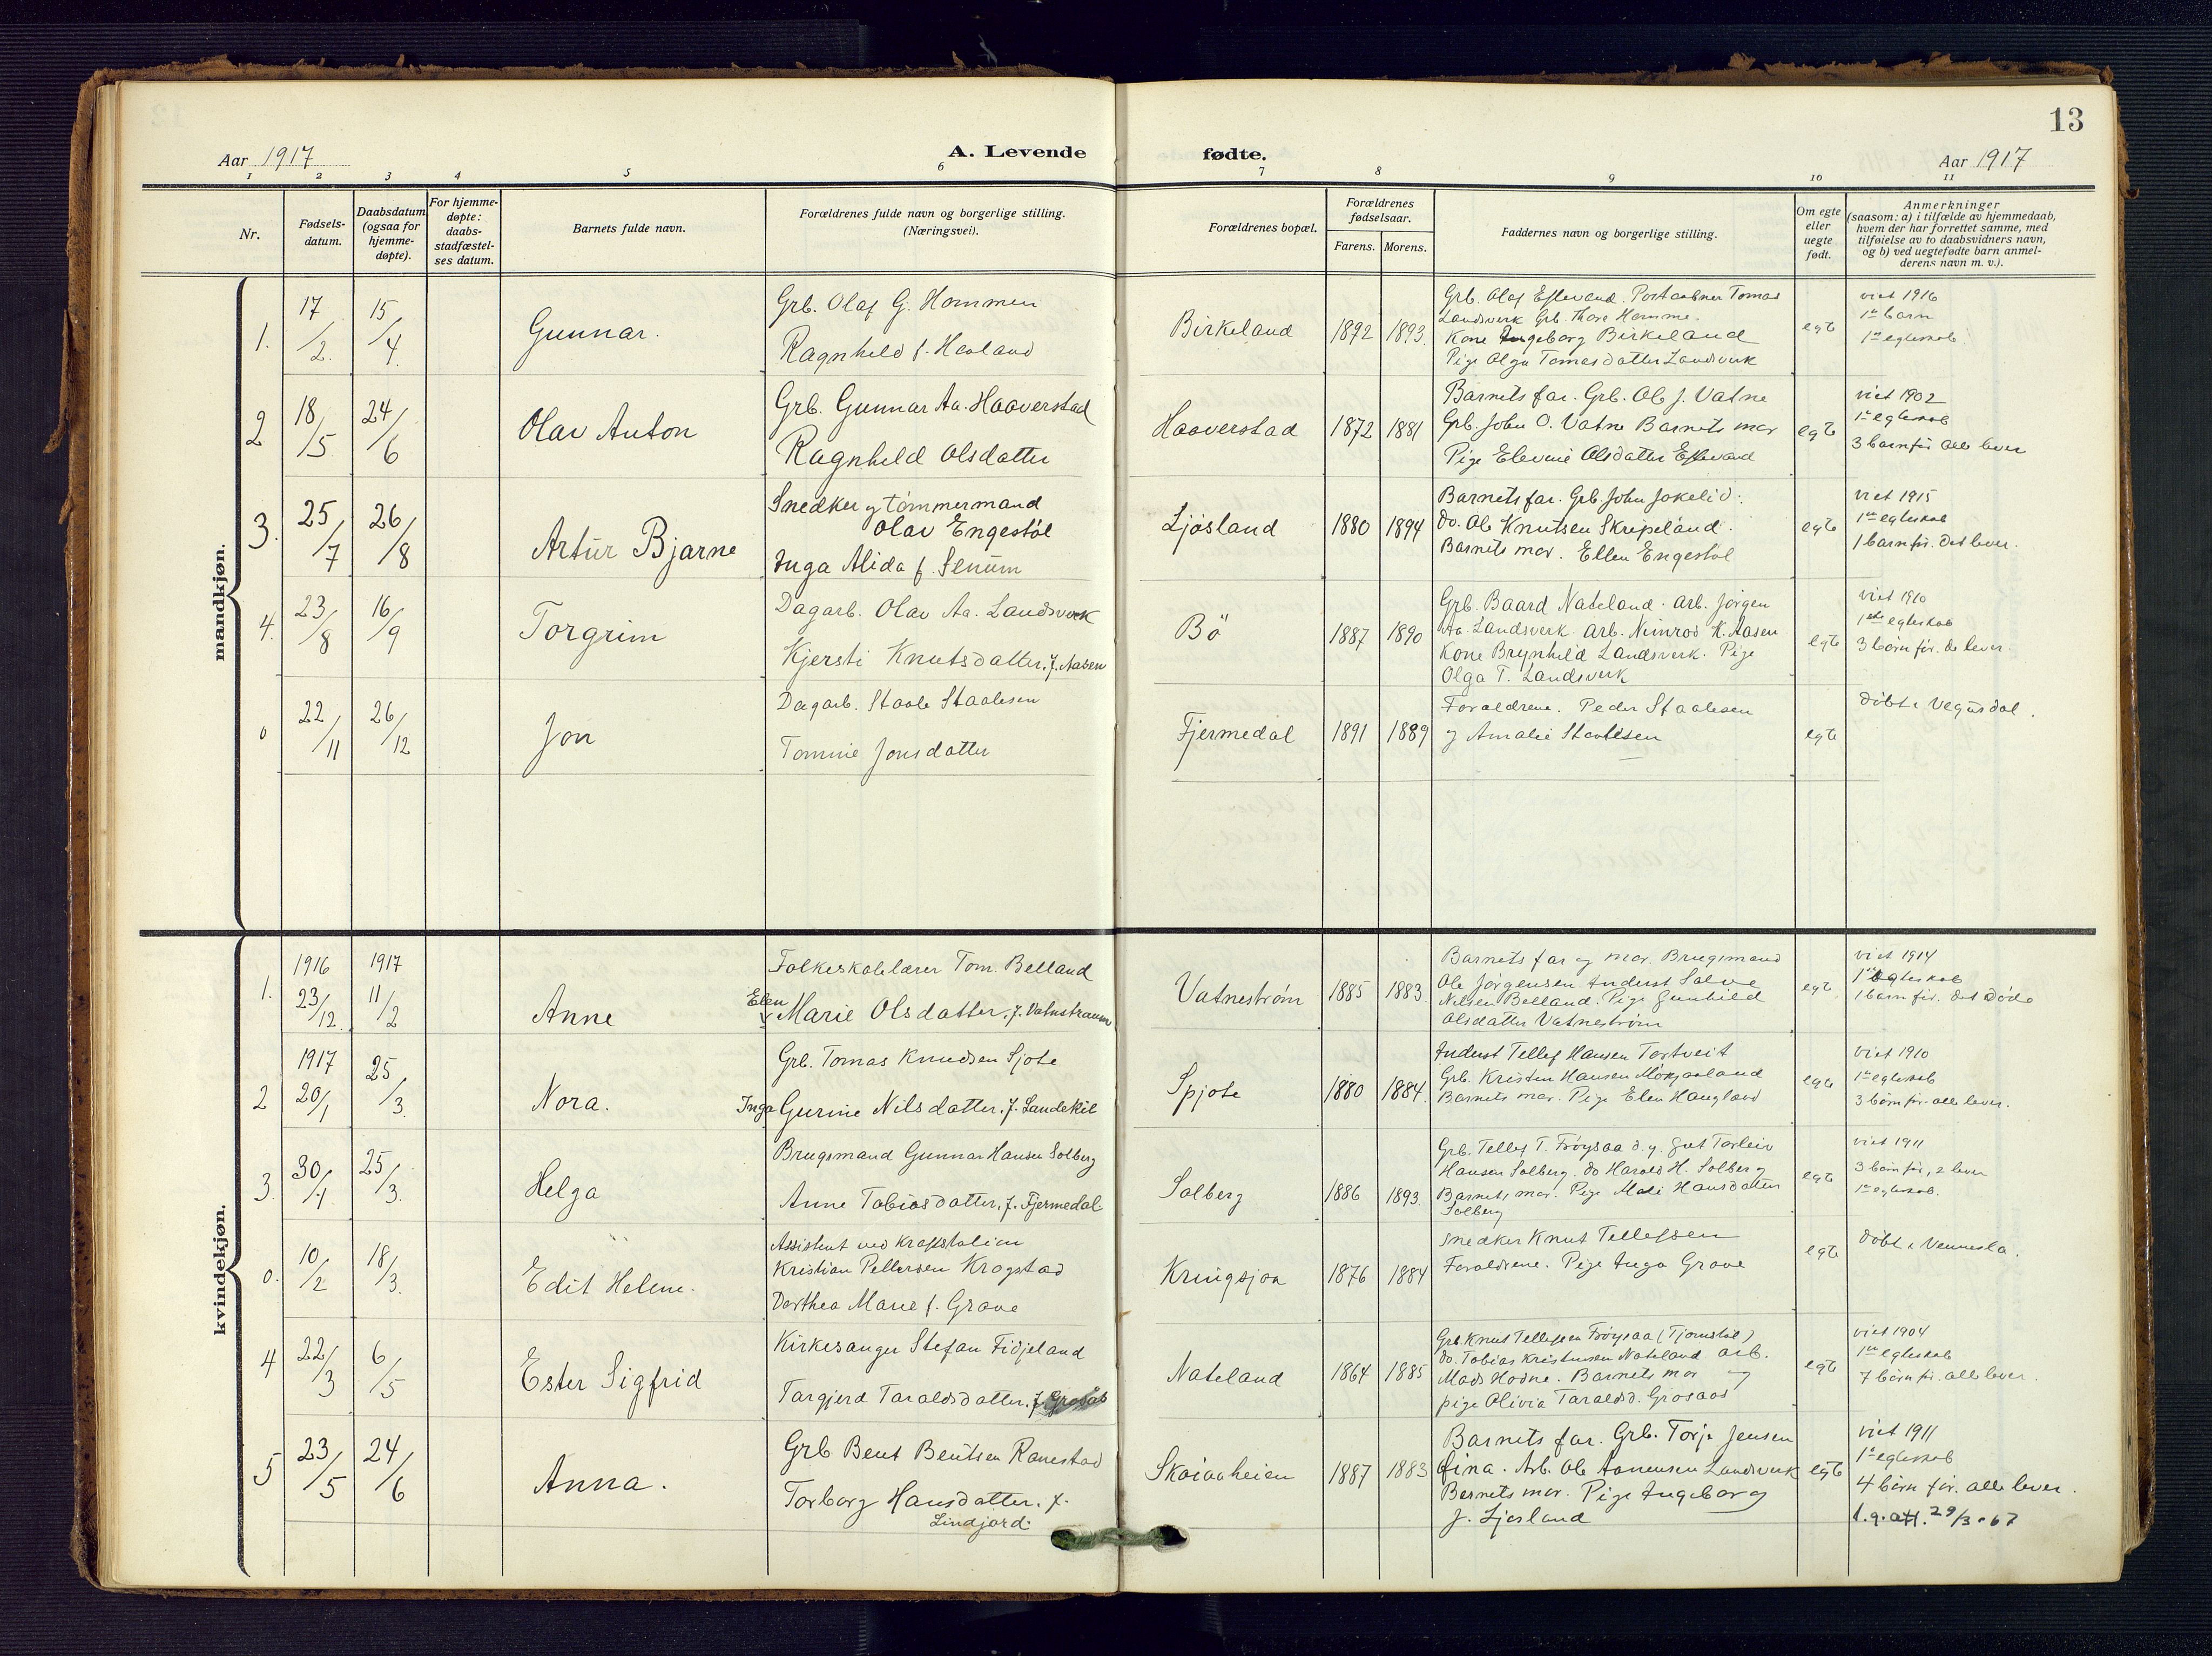 13
Aar 1917
A. Levende fødte.
Aar 1917
1 2 3 4 5 6 7 8 9 10 11
Nr.
Fødsels-
datum.
Daabsdatum
(ogsaa for
hjemme-
døpte).
For hjemme-
døpte:
daabs-
stadfæstel-
ses datum.
Barnets fulde navn.
Forældrenes fulde navn og borgerlige stilling.
(Næringsvei).
Forældrenes bopæl.
Forældrenes
fødselsaar.
Farens. Morens.
Faddernes navn og borgerlige stilling.
Om egte
eller
uegte
født.
Anmerkninger
(saasom: a) i tilfælde av hjemmedaab,
hvem der har forrettet samme, med
tilføielse av to daabsvidners navn,
og b) ved uegtefødte barn anmel-
derens navn m. v.).
mandkjøn.
1. 17/2. 15/4.
Gunnar.
Grb. Olaf G. Hommen
Ragnhild f. Henland
Birkeland 1892 1893.
Grb. Olaf Eftevand. Postaabner Tomas
Landsverk Grb. Thore Homme.
Kone Ingeborg Birkeland
Pige Olga Tomasdatter Landsverk
egte
viet 1916
1ste barn
1ste egteskab.
2 18/5 24/6
Olav Anton
Grb. Gunnar Aa. Haaverstad
Ragnhild Olsdatter
Haaverstad 1872 1881
Barnets far. Grb. Ole J. Vatne
Grb. John O. Vatne Barnets mor
Pige Elevine Olsdatter Eftevand
egte
viet 1902
1ste egteskab
3 barn før alle lever
3. 25/7 26/8
Artur Bjarne
Snedker og tømmermand
Olav Engestøl
Inga Alida f. Senum
Ljösland 1880 1894
Barnets far. Grb. John Jokelid.
do. Ole Knutsen Skripeland.
Barnets mor. Ellen Engestøl
egte
viet 1915
1ste egteskab
1 barn før. det lever.
4. 23/8 16/9
Torgrim
Dagarb. Olav Aa. Landsverk
Kjersti Knutsdatter, f. Aasen
Bö 1887 1890
Grb. Baard Nateland. Arb. Jørgen
Aa. Landsverk Arb. Nimrod K. Aasen
Kone Brynhild Landsverk. Pige
Olga T. Landsverk
egte
viet 1910
1ste egteskab
3 börn før. de lever.
0 22/11 26/12
Jon
Dagarb. Staale Staalesen
Tomine Jonsdatter
Fjermedal 1891 1889
Foraldrene. Peder Staalesen
og Amalie Staalesen
egte
Döbt i Vegusdal.
kvindekjøn.
1. 1916 23/12. 1917 11/2
Anne
Folkeskolelærer Tom. Belland
Elen
Marie Olsdatter, f. Vatnstraum
Vatneström 1885 1883.
Barnets far og mor. Brugsmand
Ole Jørgensen Inderst Salve
Nilsen Belland. Pige Gunhild
Olsdatter Vatneström
egte
viet 1914
1ste egteskab
1 barn før. det døde
2 1917 20/1 25/3.
Nora.
Grb. Tomas Knudsen Sjote
Inga Gurine Nilsdatter. f. Landekil
Spjote 1880 1884.
Inderst Tellef Hansen Tortveit
Grb. Kristen Hansen
Barnets mor. Pige Elen Haugland
egte
viet 1910
1ste egteskab
3 börn før. alle lever.
3. 30/1 25/3.
Helga
Brugsmand Gunnar Hansen Solberg
Anne Tobiasdatter, f. Fjermedal
Solberg 1886 1893.
Grb. Tellef T. Frøysaa d. y. Gut Torleiv
Hansen Solberg. do Harald H. Solberg
Barnets mor. Pige Mali Hansdatter
Solberg
egte
viet 1911
3 börn før, 2 lever
1ste egteskab.
0. 10/2 18/3.
Edit Helene.
Assistent ved kraftstation
Kristian Pettersen Krogstad
Dorthea Marie f. Grove
Kringsjaa 1876 1884
Snedker Knut Tellefsen
Foraldrene. Pige Inga Grove
egte
Döbt i Vennesla.
4 22/3 6/5
Ester Sigfrid
Kirkesanger Stefan Fidjeland
Targjerd Taraldsdatter. f. Grosaas
Nateland 1864 1885
Grb Knut Tellefsen Frøysaa (Tjomstøl)
do. Tobias Kristensen Nateland Arb.
Mads Hodne. Barnets mor og
pige Olivia Taraldsd. Grosaas
egte
viet 1904
1ste egteskab
7 börn før. alle lever.
5 23/5 24/6
Anna.
Grb Bent Bentsen Ranestad
Torborg Hansdatter. f.
Lindjord.
Skaiaaheien 1887 1883
Barnets far. Grb. Torje Jensen
Fina. Arb. Ole Aanensen Landsverk
Barnets mor. Pige Ingeborg
J. Ljosland
egte
viet 1911
1ste egteskab
4 börn før. alle lever.
l.g. att. 29/3-67